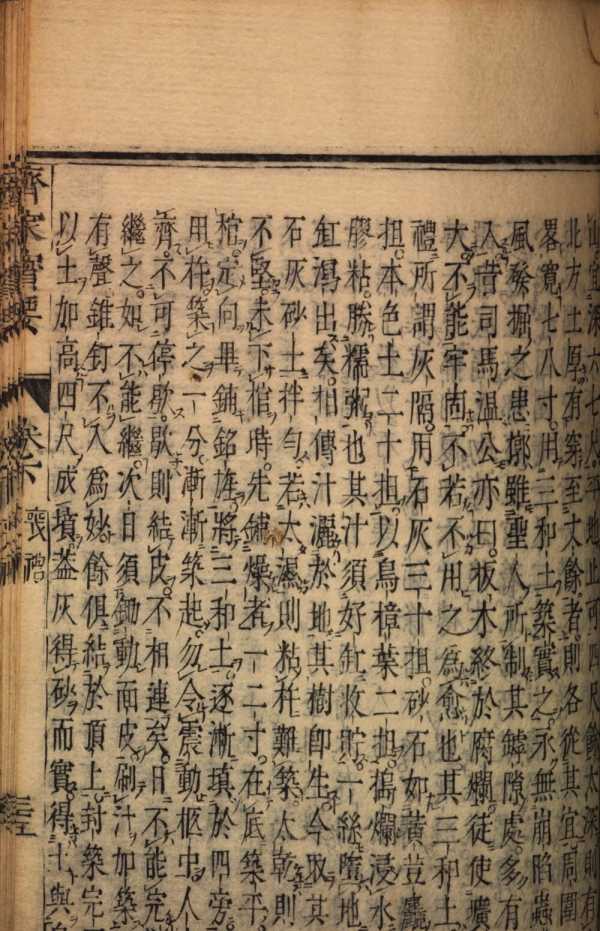 山宜深六七尺平地止可四尺餘太深則有
北方土厚有穿至丈餘者則各從其宜周圍
畧寬七八寸用三和土築實之永無崩陷蟲
風發掘之患槨雖聖人所制其罅隙處多有
入昔司馬温公亦曰板木終於腐爛徒使壙
大不能牢固不若不用之為愈也其三和土
禮所謂灰隔用石灰三十担砂石如黄荳麤
担本色土二十担以烏樟葉二担搗爛浸水
膠粘勝糯粥也其汁須好缸收貯一絲墮地
缸瀉出矣相傳汁灑於地其樹即生今取其
石灰砂土拌勻若太濕則粘杵難築太乾則
不堅未下棺時先鋪燥者一二寸在底築平
棺定向畢鋪銘旌將三和土逐漸填於四旁
用杵築之一分漸漸築起勿令震動柩中人
齊不可停歇歇則結皮不相連矣日不能完
繼之如不能繼次日須鋤動面皮刷汁加築
有聲錐釘不入為妙餘俱結於頂上封築完
以土加高四尺成墳葢灰得砂而實得土與
齊家寶要 卷下 喪禮